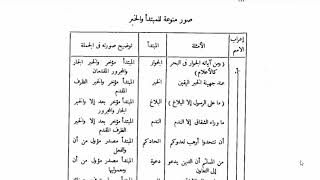 صور منوعة للمبتدأ والخبر
إعراب الاسم الأمثلة المبتدأ توضيح صورته فى الجملة
( ومن آياته الجوار فى البحر الجوار المبتدأ مؤخر والخبر الجار
كالأعلام ) والمجرور المتقدمان
عند جهينة الخبر اليقين الخبر المبتدأ مؤخر والخبر الظرف
المقدم
( ما على الرسول إلا البلاغ ) البلاغ المبتدأ مؤخر بعد إلا والخبر
الجار والمجرور المقدم
ما وراء الشقاق إلا الندم الندم المبتدأ مؤخر بعد إلا والخبر
الظرف المقدم
أن تتحدوا أرهب لعدوكم اتحادكم المبتدأ مصدر مؤول من أن
والفعل
من المسلَّم أن الدين يدعو دعوة المبتدأ مصدر مؤول من أن
إلى التعاون ومعموليها